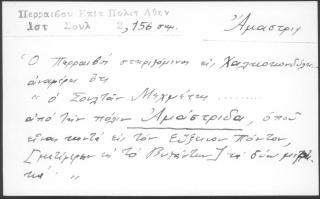 Περραιβου Επιτ Πολιτ Αθην
Ιστ Σουλ 2, 156 σημ.
Ἀμαστρις
Ὁ Περραιβὸς στηριζόμενος εἰς Χαλκοκονδύλην
ἀναφέρει ὅτι
" ὁ Σουλτὰν Μεχμέτης .........
ἀπὸ τὴν πόλιν Ἀμάστριδα, ὁποῦ
εἶναι κοντὰ εἰς τὸν Εὔξεινον Πόντον,
τὸ Βυζάντιον] τὰ δύω
κά· "